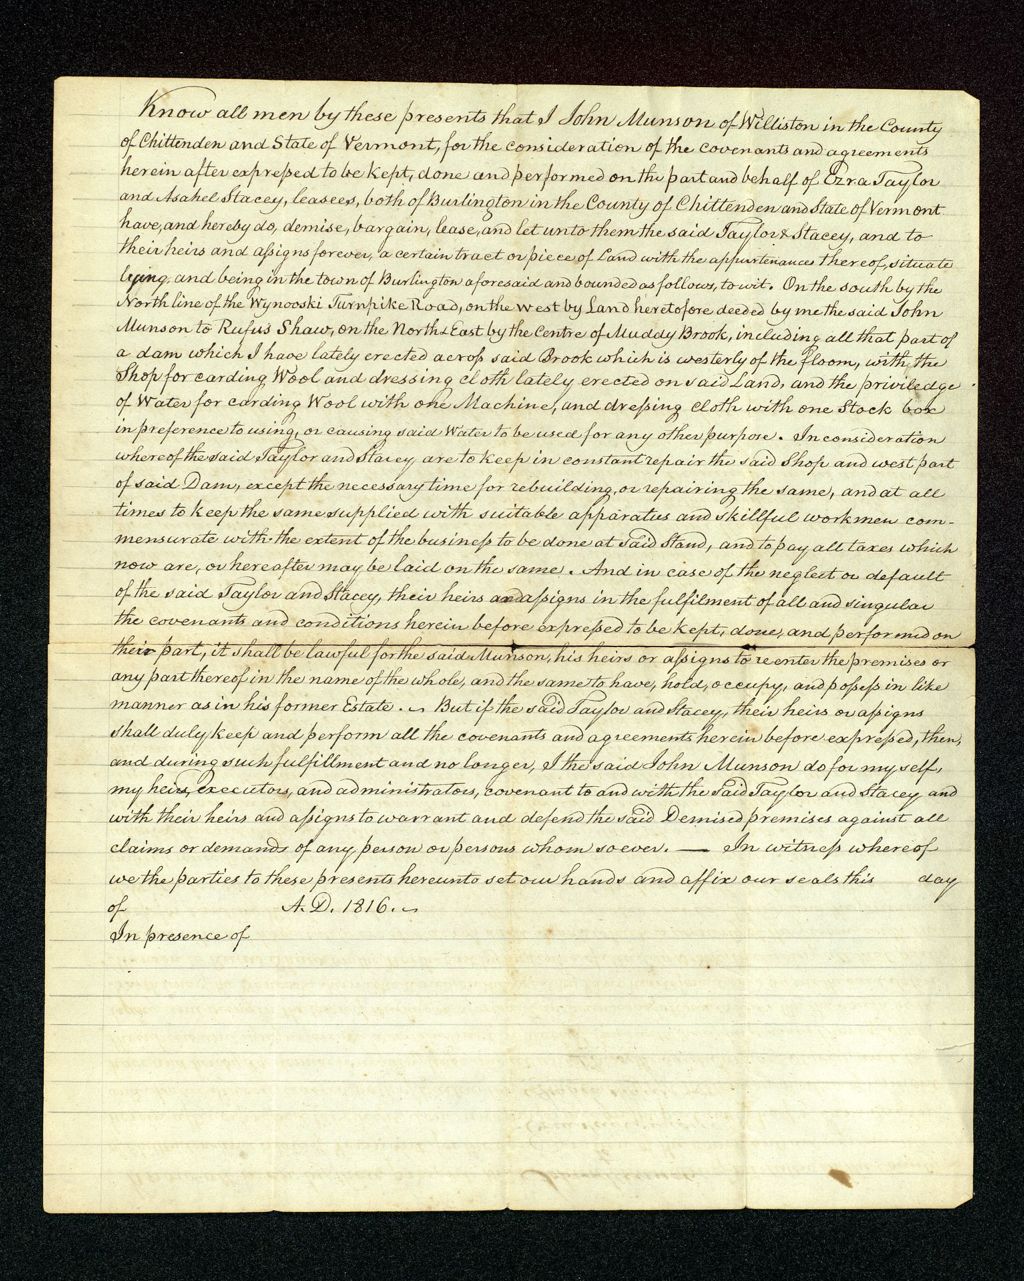 Know all men by these presents that I John Munson of Williston in the County
of Chittenden and State of Vermont, for the consideration of the covenants and agreements
herein after expressed to be kept, done and performed on the part and behalf of Ezra Taylor
and Asahel Stacey, leasees, both of Burlington in the County of Chittenden and State of Vermont
have, and hereby do, demise, bargain, lease, and let unto them the said Taylor & Stacey, and to
their heirs and assigns forever, a certain tract or piece of Land with the appurtenances thereof, situate
lying, and being in the town of Burlington aforesaid and bounded as follows, to wit. On the south by the
North line of the Wynooski Turnpike Road, on the west by Land heretofore deeded by me the said John
Munson to Rufus Shaw, on the North & East by the Centre of Muddy Brook, including all that part of
a dam which I have lately erected across said Brook which is westerly of the floom, with the
Shop for carding Wool and dressing cloth lately erected on said Land, and the priviledge
of Water for carding Wool with one Machine, and dressing cloth with one Stock box
in preference to using, or causing said Water to be used for any other purpose. In consideration
whereof the said Taylor and Stacey are to keep in constant repair the said Shop and west part
of said Dam, except the necessary time for rebuilding, or repairing the same, and at all
times to keep the same supplied with suitable apparatus and skillful workmen com-
mensurate with the extent of the business to be done at said Stand, and to pay all taxes which
now are, or hereafter may be laid on the same. And in case of the neglect or default
of the said Taylor and Stacey, their heirs and assigns in the fulfilment of all and singular
the covenants and conditions herein before expressed to be kept, done, and performed on
their part, it shall be lawful for the said Munson, his heirs or assigns to reenter the premises or
any part thereof in the name of the whole, and the same to have, hold, occupy, and possess in like
manner as in his former Estate. But if the said Taylor and Stacey, their heirs or assigns
shall duly keep and perform all the covenants and agreements herein before expressed, then,
and during such fulfillment and no longer, I the said John Munson do for my self,
my heirs, executors, and administrators, covenant to and with the said Taylor and Stacey and
with their heirs and assigns to warrant and defend the said Demised premises against all
claims or demands of any person or persons whom soever. — In witness whereof
we the parties to these presents hereunto set our hands and affix our seals this day
of A.D. 1816.
In presence of